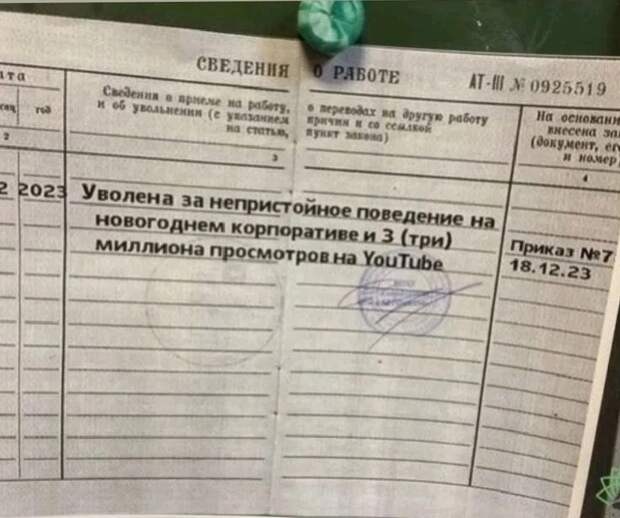 СВЕДЕНИЯ О РАБОТЕ АТ-III № 0925519
год
Сведения о приеме на работу, о переводах на другую работу
и об увольнении (с указанием причин и со ссылкой
на статью, пункт закона)
На основании
внесена
(документ, его
и номер)
2
3
4
2 2023 Уволена за непристойное поведение на
новогоднем корпоративе и 3 (три)
миллиона просмотров на YouTube
Приказ №7
18.12.23